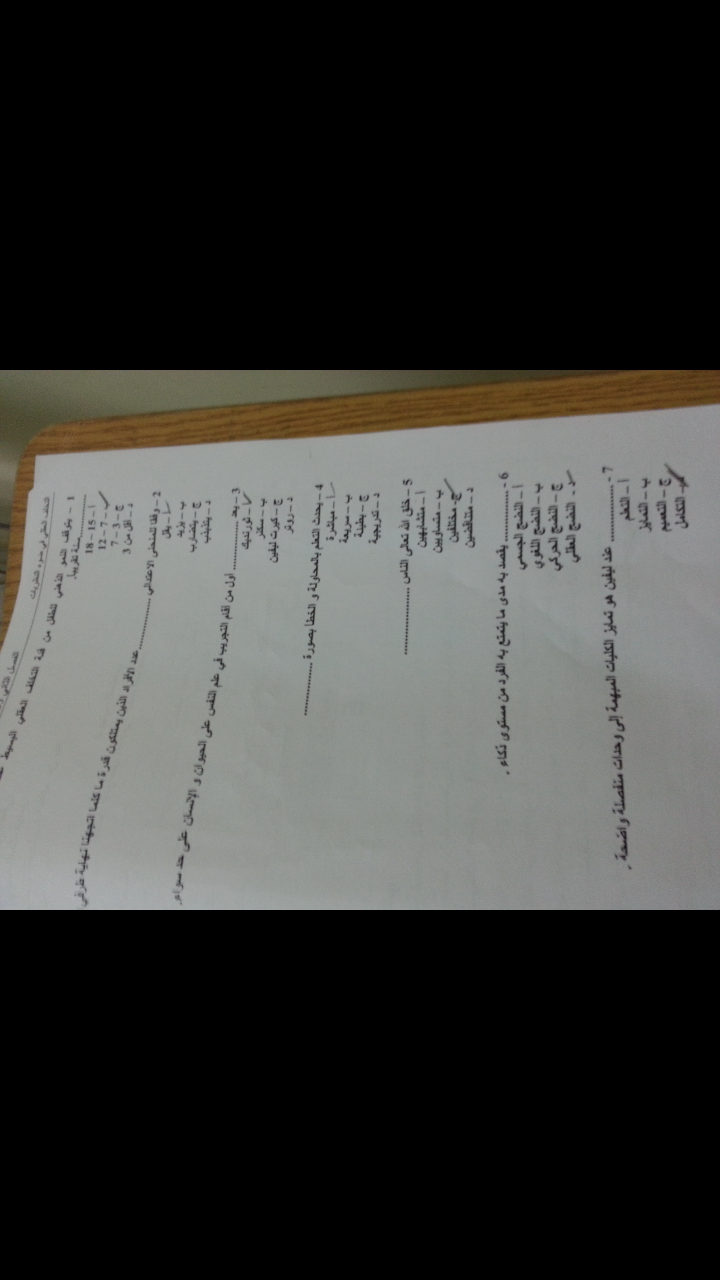 الفصل الثاني
التخلف العقلي في ضوء النظريات
1 - يتوقف النمو الذهني للطفل من فئة التخلف العقلي البسيط
............ سنة تقريبا.
أ – 15 - 18
ب – 7 - 12
ج – 3 - 7
د – أقل من 3
2 – وفقا للمنحنى الاعتدالي ............ عدد الأفراد الذين يمتلكون قدرة ما كلما اتجهنا نهاية طرفي
أ – يقل
ب – يزيد
ج – يتضارب
د – يتذبذب
3 – يعد ............ أول من أقام التجريب في علم النفس على الحيوان و الإنسان على حد سواء.
أ – ثورنديك
ب – سكنر
ج – كيرت ليفين
د – روتر
4 – يحدث التعلم بالمحاولة و الخطأ بصورة ............
أ – مباشرة
ب – سريعة
ج – بطيئة
د – تدريجية
5 – خلق الله تعالى الناس ............
أ – متشابهين
ب – متساويين
ج – مختلفين
د – متناقضين
6 - ............ يقصد به مدى ما يتمتع به الفرد من مستوى ذكاء .
أ – النضج الجسمي
ب – النضج اللغوي
ج – النضج الحركي
د - النضج العقلي
7 - ............ عند ليفين هو تمايز الكليات المبهمة إلى وحدات منفصلة واضحة .
أ – التعلم
ب – التمايز
ج – التعميم
د – التكامل